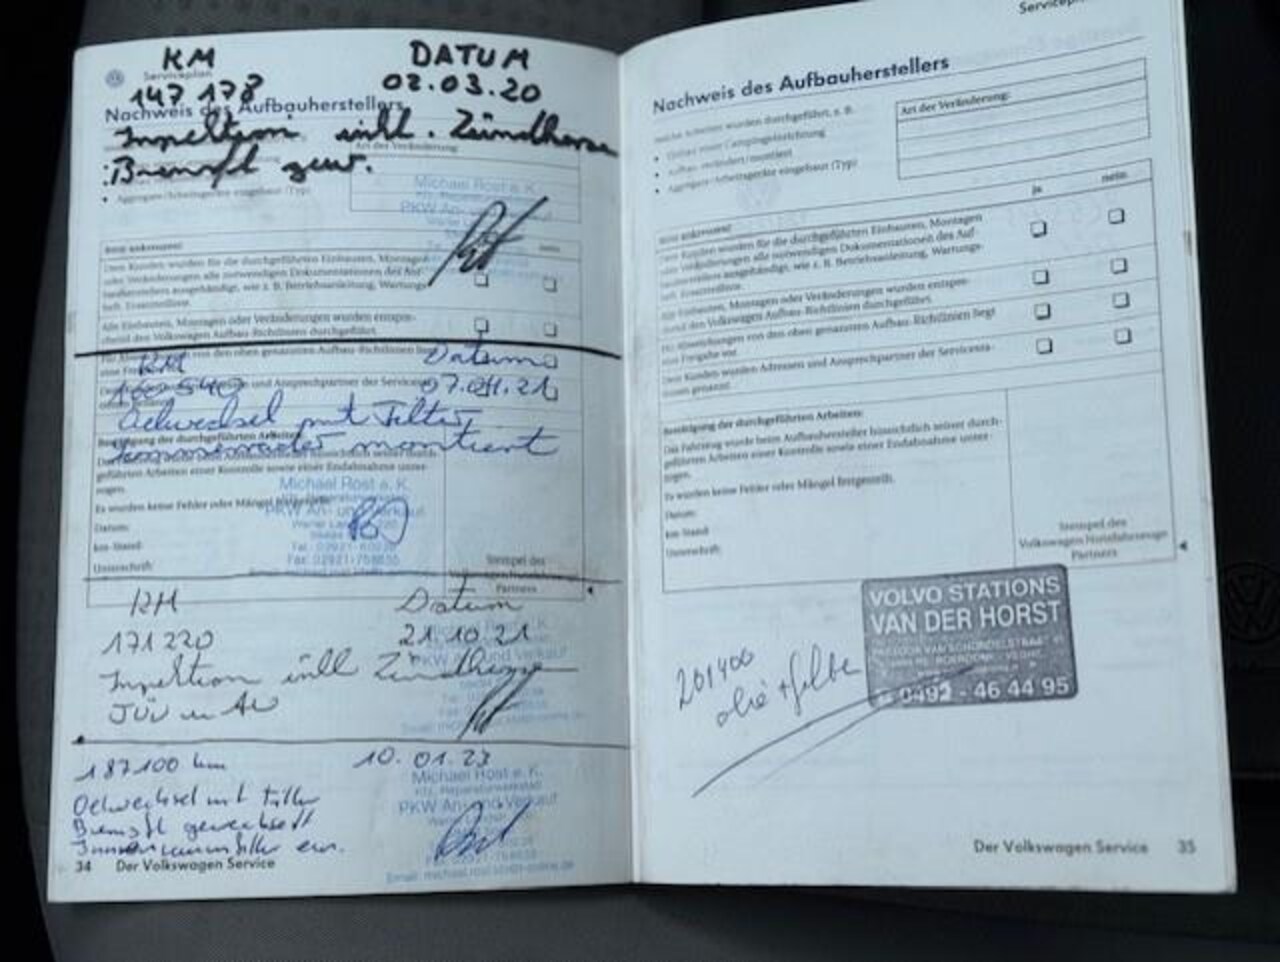 KM DATUM
Serviceplan
147 178 02.03.20
Nachweis des Aufbauherstellers
Inspektion inkl. Zündkerze
Bremsfl gew.
Art der Veränderung:
• Aggregate/Arbeitsgeräte eingebaut (Typ)
Michael Rost e. K.
PKW An- und
ja nein
Dem Kunden wurden für die durchgeführten Einbauten, Montagen
oder Veränderungen alle notwendigen Dokumentationen des Auf-
bauherstellers ausgehändigt, wie z. B. Betriebsanleitung, Wartungs-
heft, Ersatzteilliste.
Alle Einbauten, Montagen oder Veränderungen wurden entspre-
chend den Volkswagen Aufbau-Richtlinien durchgeführt.
von den oben genannten Aufbau-Richtlinien liegt
KM Datum
und Ansprechpartner der Servicesta-
07.04.21
Oelwechsel mit Filter
Bestätigung der durchgeführten Arbeiten:
Sommerräder montiert
geführten Arbeiten einer Kontrolle sowie einer Endabnahme unter-
zogen.
Michael Rost e. K.
Es wurden keine Fehler oder Mängel festgestellt.
PKW An- und Verkauf
Datum:
km-Stand:
Unterschrift:
Stempel des
Volkswagen Nutzfahrzeuge
Partners
KM Datum
171220 21.10.21
Inspektion inkl Zündkerze
TÜV u AU
187100 km 10.01.23
Michael Rost e. K.
Kfz. Reparaturwerkstatt
Oelwechsel mit Filter
PKW An- und Verkauf
Bremsfl gewechselt
Innenraumfilter ern.
34 Der Volkswagen Service
Serviceplan
Nachweis des Aufbauherstellers
Welche Arbeiten wurden durchgeführt, z. B.
• Einbau einer Campingeinrichtung
• Aufbau verändert/montiert
• Aggregate/Arbeitsgeräte eingebaut (Typ)
Art der Veränderung:
ja nein
Bitte ankreuzen!
Dem Kunden wurden für die durchgeführten Einbauten, Montagen
oder Veränderungen alle notwendigen Dokumentationen des Auf-
bauherstellers ausgehändigt, wie z. B. Betriebsanleitung, Wartungs-
heft, Ersatzteilliste.
Alle Einbauten, Montagen oder Veränderungen wurden entspre-
chend den Volkswagen Aufbau-Richtlinien durchgeführt.
Für Abweichungen von den oben genannten Aufbau-Richtlinien liegt
eine Freigabe vor.
Dem Kunden wurden Adressen und Ansprechpartner der Servicesta-
tionen genannt.
Bestätigung der durchgeführten Arbeiten:
Das Fahrzeug wurde beim Aufbauhersteller hinsichtlich seiner durch-
geführten Arbeiten einer Kontrolle sowie einer Endabnahme unter-
zogen.
Es wurden keine Fehler oder Mängel festgestellt.
Datum:
km-Stand:
Unterschrift:
Stempel des
Volkswagen Nutzfahrzeuge
Partners
VOLVO STATIONS
VAN DER HORST
PASTOOR VAN SCHIJNDELSTRAAT
0492 - 46 44 95
201400
olie + filter
Der Volkswagen Service 35